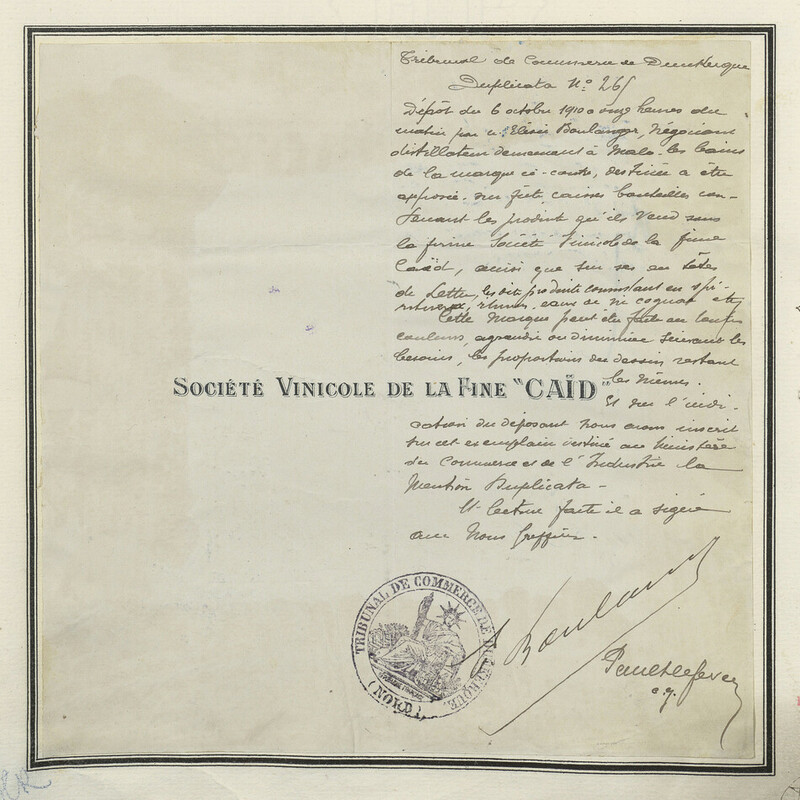 Tribunal de Commerce de Dunkerque
Duplicata No. 265
Dépôt du 6 octobre 1910 à onze heures du
matin par M. Elisée Boulanger, Négociant
distillateur demeurant à Malo-les-bains
de la marque ci-contre, destinée à être
apposée sur fûts, caisses bouteilles con-
tenant les produits qu'ils vend sous
la firme Société Vinicole de la fine
Caïd, ainsi que sur ses en têtes
de Lettres, les dits produits consistant en spi-
ritueux, rhums, eaux de vie cognac etc
Cette Marque peut être faite en toutes
couleurs, agrandie ou diminuée suivant les
besoins, les proportions du dessin restant
les mêmes.
SOCIÉTÉ VINICOLE DE LA FINE "CAÏD"
Et sur l'indi-
cation du déposant Nous avons inscrit
sur cet exemplaire destiné au Ministère
du Commerce et de l'Industrie la
Mention Duplicata -
Et lecture faite il a signé
avec Nous Greffier.
TRIBUNAL DE COMMERCE DE DUNKERQUE
(NORD)
Boulanger
Paul Lefever